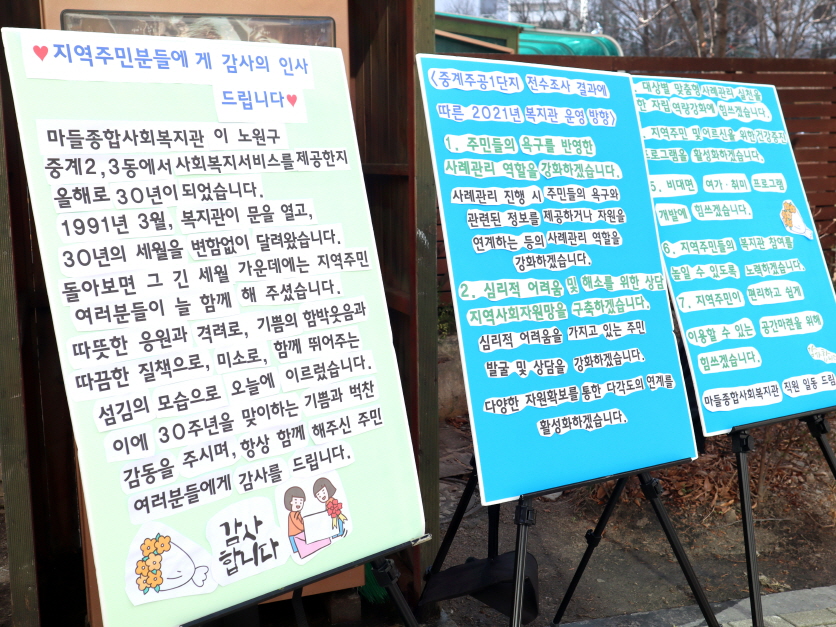 ♥지역주민분들에 게 감사의 인사
드립니다♥
마들종합사회복지관 이 노원구
중계2,3동에서 사회복지서비스를 제공한지
올해로 30년이 되었습니다.
1991년 3월, 복지관이 문을 열고,
30년의 세월을 변함없이 달려왔습니다.
돌아보면 그 긴 세월 가운데에는 지역주민
여러분들이 늘 함께 해 주셨습니다.
따뜻한 응원과 격려로, 기쁨의 함박웃음과
따끔한 질책으로, 미소로, 함께 뛰어주는
섬김의 모습으로 오늘에 이르렀습니다.
이에 30주년을 맞이하는 기쁨과 벅찬
감동을 주시며, 항상 함께 해주신 주민
여러분들에게 감사를 드립니다.
감사
합니다
<중계주공1단지 전수조사 결과에
따른 2021년 복지관 운영방향>
1. 주민들의 욕구를 반영한
사례관리 역할을 강화하겠습니다.
사례관리 진행 시 주민들의 욕구와
관련된 정보를 제공하거나 자원을
연계하는 등의 사례관리 역할을
강화하겠습니다.
2. 심리적 어려움 및 해소를 위한 상담
지역사회자원망을 구축하겠습니다.
심리적 어려움을 가지고 있는 주민
발굴 및 상담을 강화하겠습니다.
다양한 자원확보를 통한 다각도의 연계를
활성화하겠습니다.
. 대상별 맞춤형 사례관리 실천을
한 자립 역량강화에 힘쓰겠습니다.
. 지역주민 및 어르신을 위한 건강증진
프로그램을 활성화하겠습니다.
5. 비대면 여가·취미 프로그램
개발에 힘쓰겠습니다.
6. 지역주민들의 복지관 참여를
높일 수 있도록 노력하겠습니다.
7. 지역주민이 편리하고 쉽게
이용할 수 있는 공간마련을 위해
힘쓰겠습니다.
마들종합사회복지관 직원 일동 드림